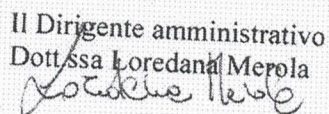 Il Dirigente amministrativo
Dott.ssa Loredana Merola
Loredana Merola